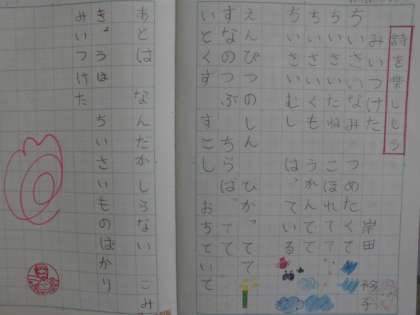 詩を楽しもう
みいつけた
岸田 衿子
ちいさいなみ つめたくて
ちいさいいし こぼれてて
ちいさいくも うかんでて
ちいさいむし はっている
えんぴつのしん ひかってて
すなのつぶ ちらばってて
いとくず すこし おちていて
あとは なんだかしらない こみ
きょうは ちいさいものばかり
みいつけた